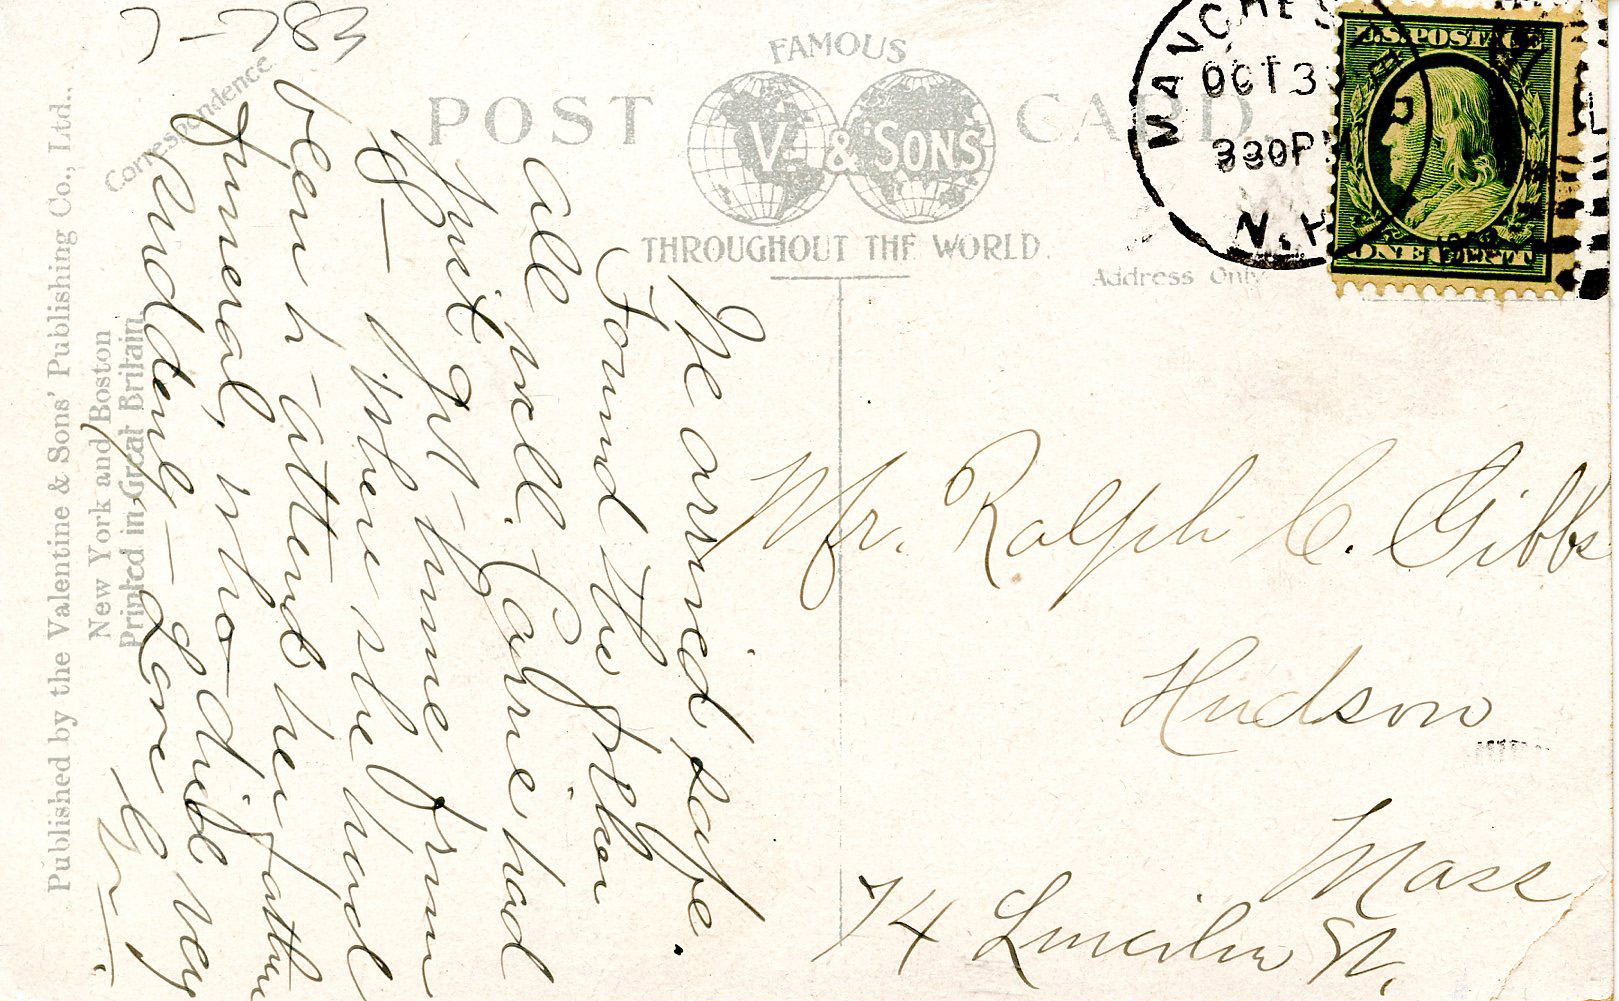 FAMOUS
POST CARD.
V. & SONS
THROUGHOUT THE WORLD.
Correspondence
Address Only
MANCHES
OCT 3
330P
N.H.
U.S. POSTAGE
ONE CENT
Published by the Valentine & Sons' Publishing Co., Ltd.,
New York and Boston
Printed in Great Britain
We arrived safe.
Found the folks
all well. Carrie had
just got home from
where she had
been to attend her father
funeral, who died very
suddenly – Love
Mr. Ralph C. Gibbs
Hudson
Mass
74 Lincoln St.